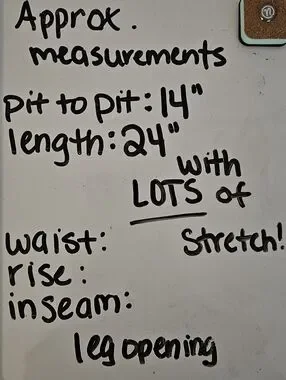 Approx.
measurements
pit to pit: 14"
length: 24"
with
LOTS of
stretch!
waist:
rise:
inseam:
leg opening